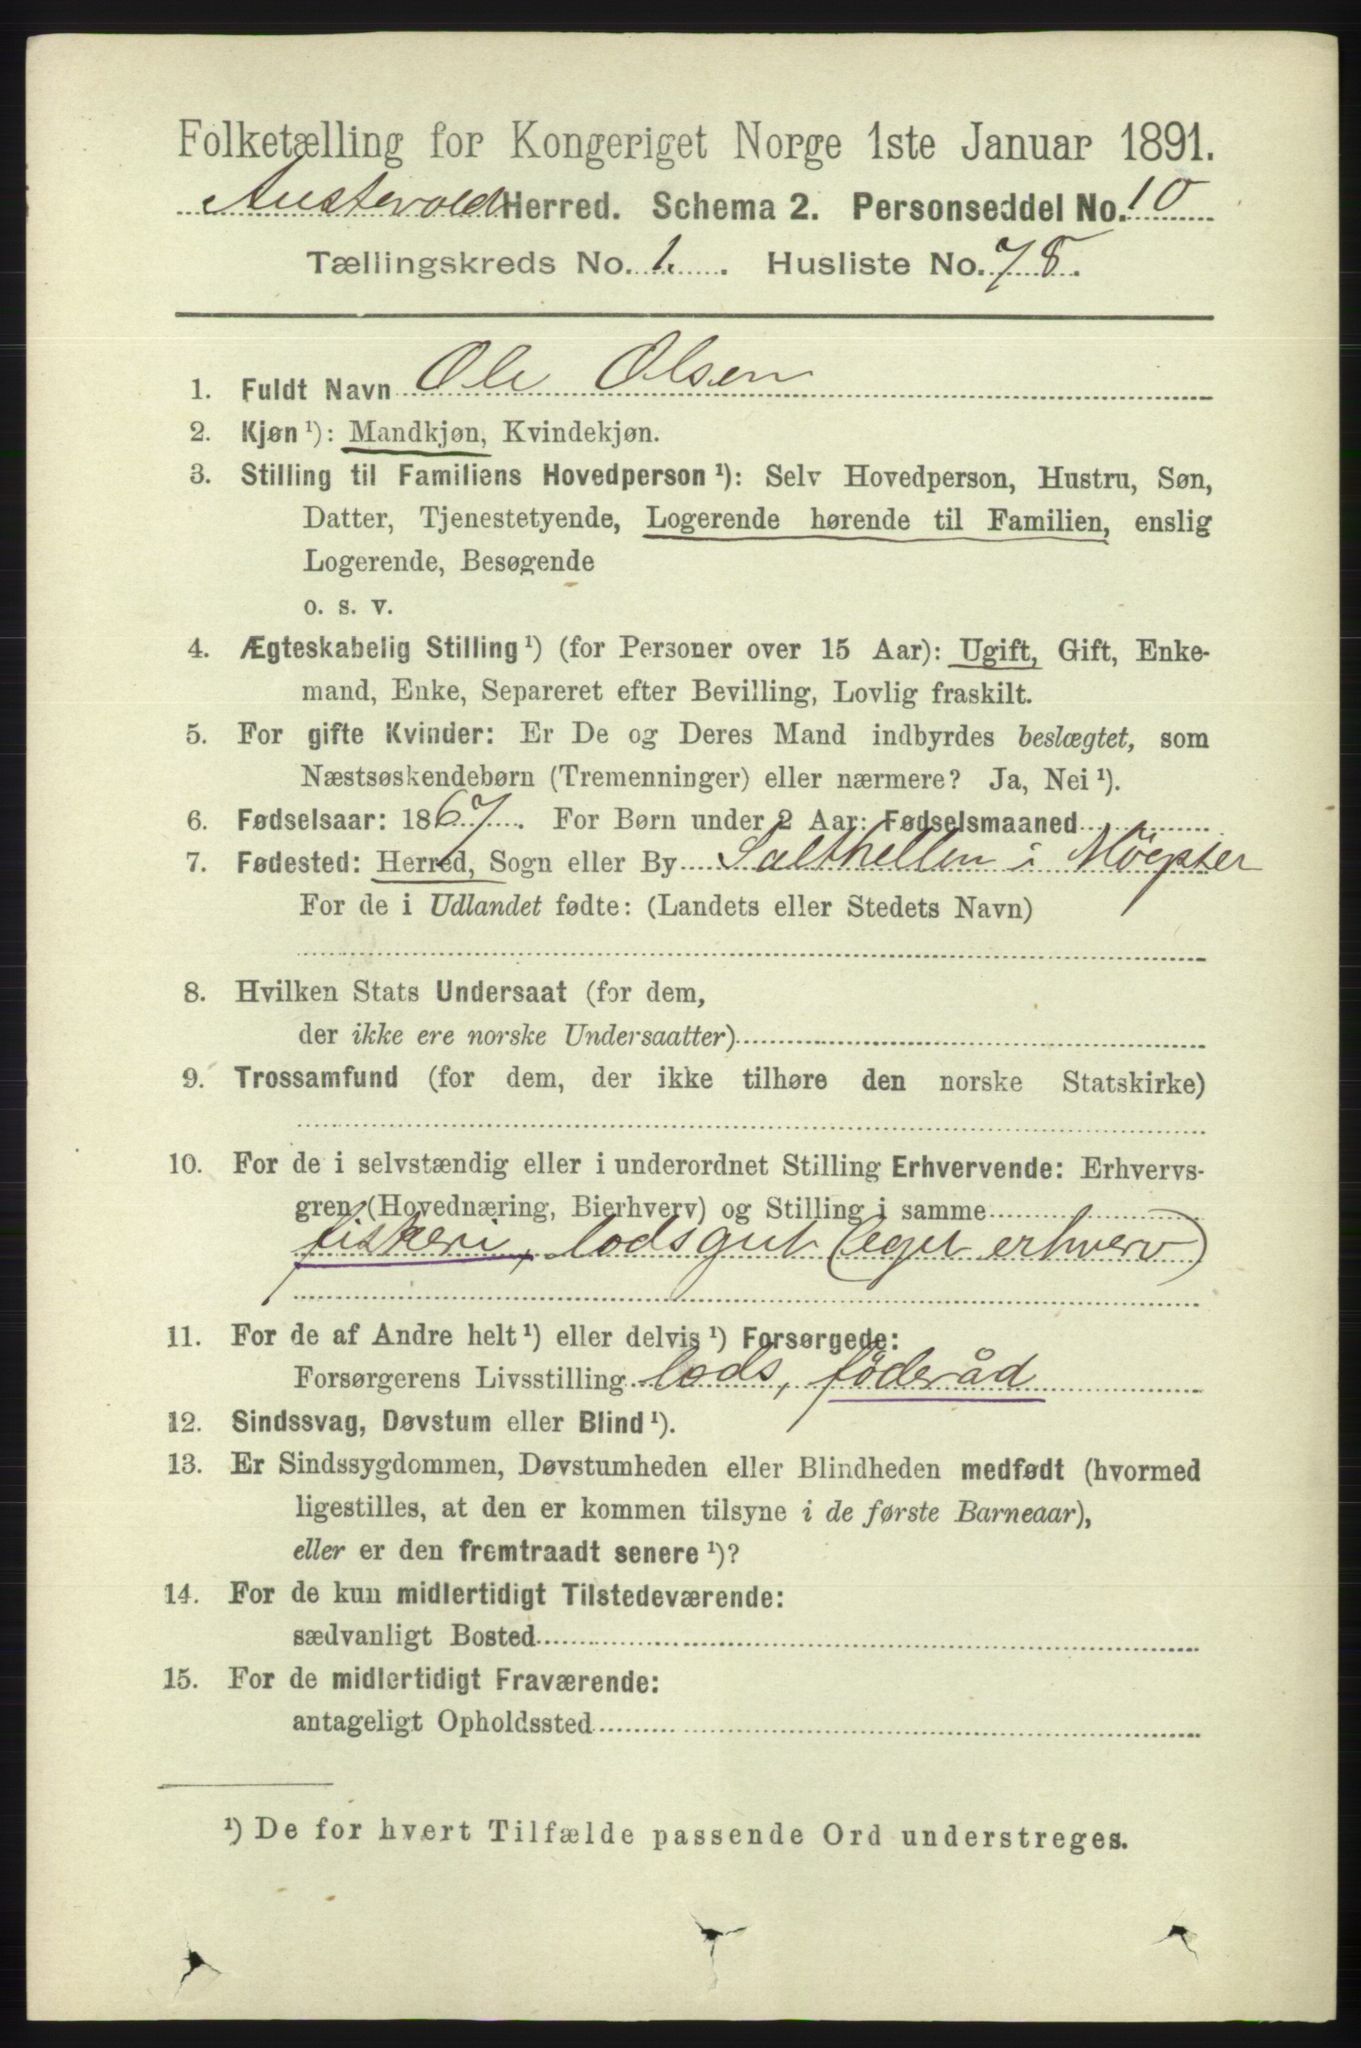 Folketælling for Kongeriget Norge 1ste Januar 1891.
Austevold Herred. Schema 2. Personseddel No. 10
Tællingskreds No. 1. Husliste No. 78.
1. Fuldt Navn Ole Olsen
2. Kjøn ¹): Mandkjøn, Kvindekjøn.
3. Stilling til Familiens Hovedperson ¹): Selv Hovedperson, Hustru, Søn,
Datter, Tjenestetyende, Logerende hørende til Familien, enslig
Logerende, Besøgende
o. s. v.
4. Ægteskabelig Stilling ¹) (for Personer over 15 Aar): Ugift, Gift, Enke-
mand, Enke, Separeret efter Bevilling, Lovlig fraskilt.
5. For gifte Kvinder: Er De og Deres Mand indbyrdes beslægtet, som
Næstsøskendebørn (Tremenninger) eller nærmere? Ja, Nei ¹).
6. Fødselsaar: 1867. For Børn under 2 Aar: Fødselsmaaned
7. Fødested: Herred, Sogn eller By Salthellen i Möγster
For de i Udlandet fødte: (Landets eller Stedets Navn)
8. Hvilken Stats Undersaat (for dem,
der ikke ere norske Undersaatter)
9. Trossamfund (for dem, der ikke tilhøre den norske Statskirke)
10. For de i selvstændig eller i underordnet Stilling Erhvervende: Erhvervs-
gren (Hovednæring, Bierhverv) og Stilling i samme
fiskeri, lodsgut (eget erhverv)
11. For de af Andre helt ¹) eller delvis ¹) Forsørgede:
Forsørgerens Livsstilling lods, föderåd
12. Sindssvag, Døvstum eller Blind ¹).
13. Er Sindssygdommen, Døvstumheden eller Blindheden medfødt (hvormed
ligestilles, at den er kommen tilsyne i de første Barneaar),
eller er den fremtraadt senere ¹)?
14. For de kun midlertidigt Tilstedeværende:
sædvanligt Bosted
15. For de midlertidigt Fraværende:
antageligt Opholdssted
¹) De for hvert Tilfælde passende Ord understreges.